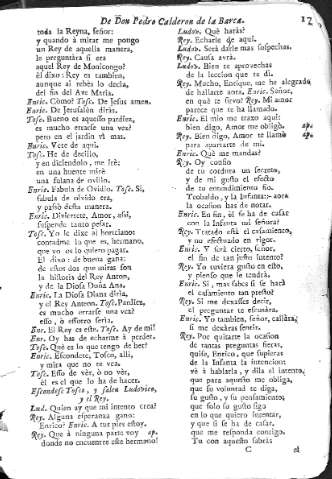 De Don Pedro Calderon de la Barca.
17
toda la Reyna, señor:
y quando à mirar me pongo
un Rey de aquella manera,
le preguntàra si era
aquel Rey de Monicongo?
èl dixo: Rey es tambien,
aunque al rebès lo decia,
del fin del Ave Maria.
Enric. Còmo? Tosc. De Jesus amen.
Enric. De Jerusalèn diràs.
Tosc. Bueno es aquesso pardiez,
es mucho errarse una vez?
pero en el jardin ri mas.
Enric. Vete de aqui.
Tosc. He de decillo,
y en diciendolo, me irè:
en una fuente mirè
una fulana de ovillo.
Enric. Fabula de Ovidio. Tosc. Sì,
fabula de olvido era,
y passò desta manera.
Enric. Divierteté, Amor, assi,
suspende tanto pesar.
Tosc. Yo le dixe al hortelano:
contadme lo que es, hermano,
que yo os lo quiero pagar.
El dixo: de buena gana:
de essos dos que miras son
la historia del Rey Anton,
y de la Diosa Doña Ana.
Enric. La Diosa Diana diria,
y el Rey Anteon. Tosc. Pardiez,
es mucho errarse una vez?
esso, ò essotro seria.
Enr. El Rey es este. Tosc. Ay de mi!
Enr. Oy has de echarme à perder.
Tosc. Què es lo que tengo de hacer?
Enric. Escondete, Tosco, alli,
y mira que no te vea.
Tosc. Esso de vèr, ò no vèr,
èl es el que lo ha de hacer.
Escondese Tosco, y salen Ludovico,
y el Rey.
Lud. Quien ay que mi intento crea?
Rey. Alguna esperanza gano:
Enrico? Enric. A tus pies estoy.
Rey. Que à ninguna parte voy ap.
donde no encuentre este hermano!
Ludov. Què haràs?
Rey. Echarle de aqui.
Ludov. Serà darle mas sospechas.
Rey. Causa avrà.
Ludov. Bien te aprovechas
de la leccion que te di.
Rey. Mucho, Enrique, me he alegrado
de hallarte aora. Enric. Señor,
en què te sirvo? Rey. Mi amor
parece que te ha llamado.
Enric. El mio me traxo aqui:
bien digo, Amor me obligò. ap.
Rey. Bien digo, Amor te llamò ap.
para apartarte de mi.
Enric. Què me mandas?
Rey. Oy confio
de tu cordura un secreto,
y de mi gusto el efecto
de tu entendimiento fio.
Teobaldo, y la Infanta: aora
la ocasion has de notar.
Enric. En fin, èl se ha de casar
con la Infanta mi señora?
Rey. Tratado està el casamiento,
y no efectuado en rigor.
Enric. Y serà cierto, señor,
el fin de tan justo intento?
Rey. Yo tuviera gusto en esto,
y pienso que le tendrà.
Enric. Sì, mas sabes si se harà
el casamiento tan presto?
Rey. Si me dexasses decir,
el preguntar te escusàra.
Enric. Yo tambien, señor, callàra,
si me dexàras sentir.
Rey. Por quitarte la ocasion
de tantas preguntas fieras,
quiso, Enrico, que supieras
de la Infanta la intencion:
vè à hablarla, y dila al intento,
que para aquesto me obliga,
que su voluntad te diga,
su gusto, y su pensamiento;
que solo su gusto sigo
en lo que quiero intentar,
y que si se ha de casar,
que me responda contigo.
Tu con aquesto sabràs
C
el